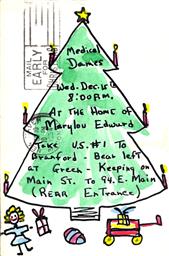 MAIL
EARLY
FOR
Medical
Dames
Wed. Dec. 15
8:00 P.M.
At the Home of
Marylou Edward
Take U.S. #1 To
Branford - Bear left
at Green - Keeping on
Main St. To 94 E. Main
(Rear Entrance)